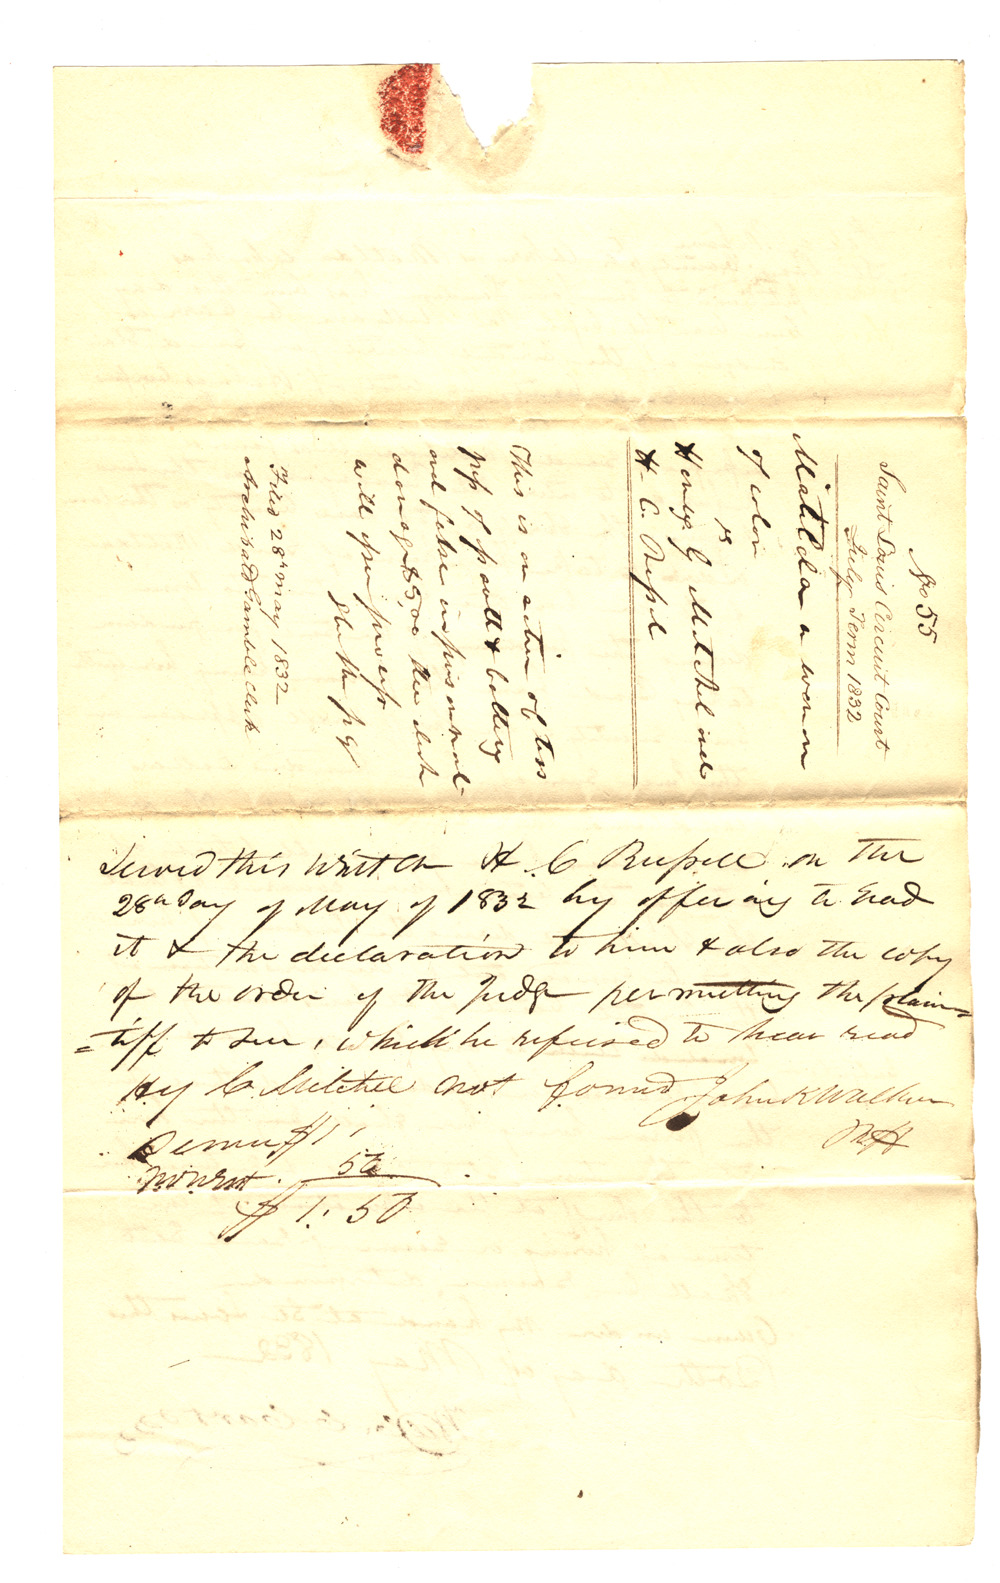 No 55
Saint Louis Circuit Court
July Term 1832
Matilda a woman
of color
vs
Henry G Mitchel and
H. C. Russel
This is an action of tres
pass of assault & battery
and false imprisonment
damage $500 the clerk
will issue process
for the
Filed 28th may 1832
Archibald Gamble Clerk
Served this Writ on H C Russell on the
28th Day of May of 1832 by offering to read
it & the declaration to him & also the copy
of the order of the Judge permitting the plain=
=tiff to sue, which he refused to hear read
Hy C Mitchell not found John K Walker
Shff
Service $1
Non Est 50
$1.50